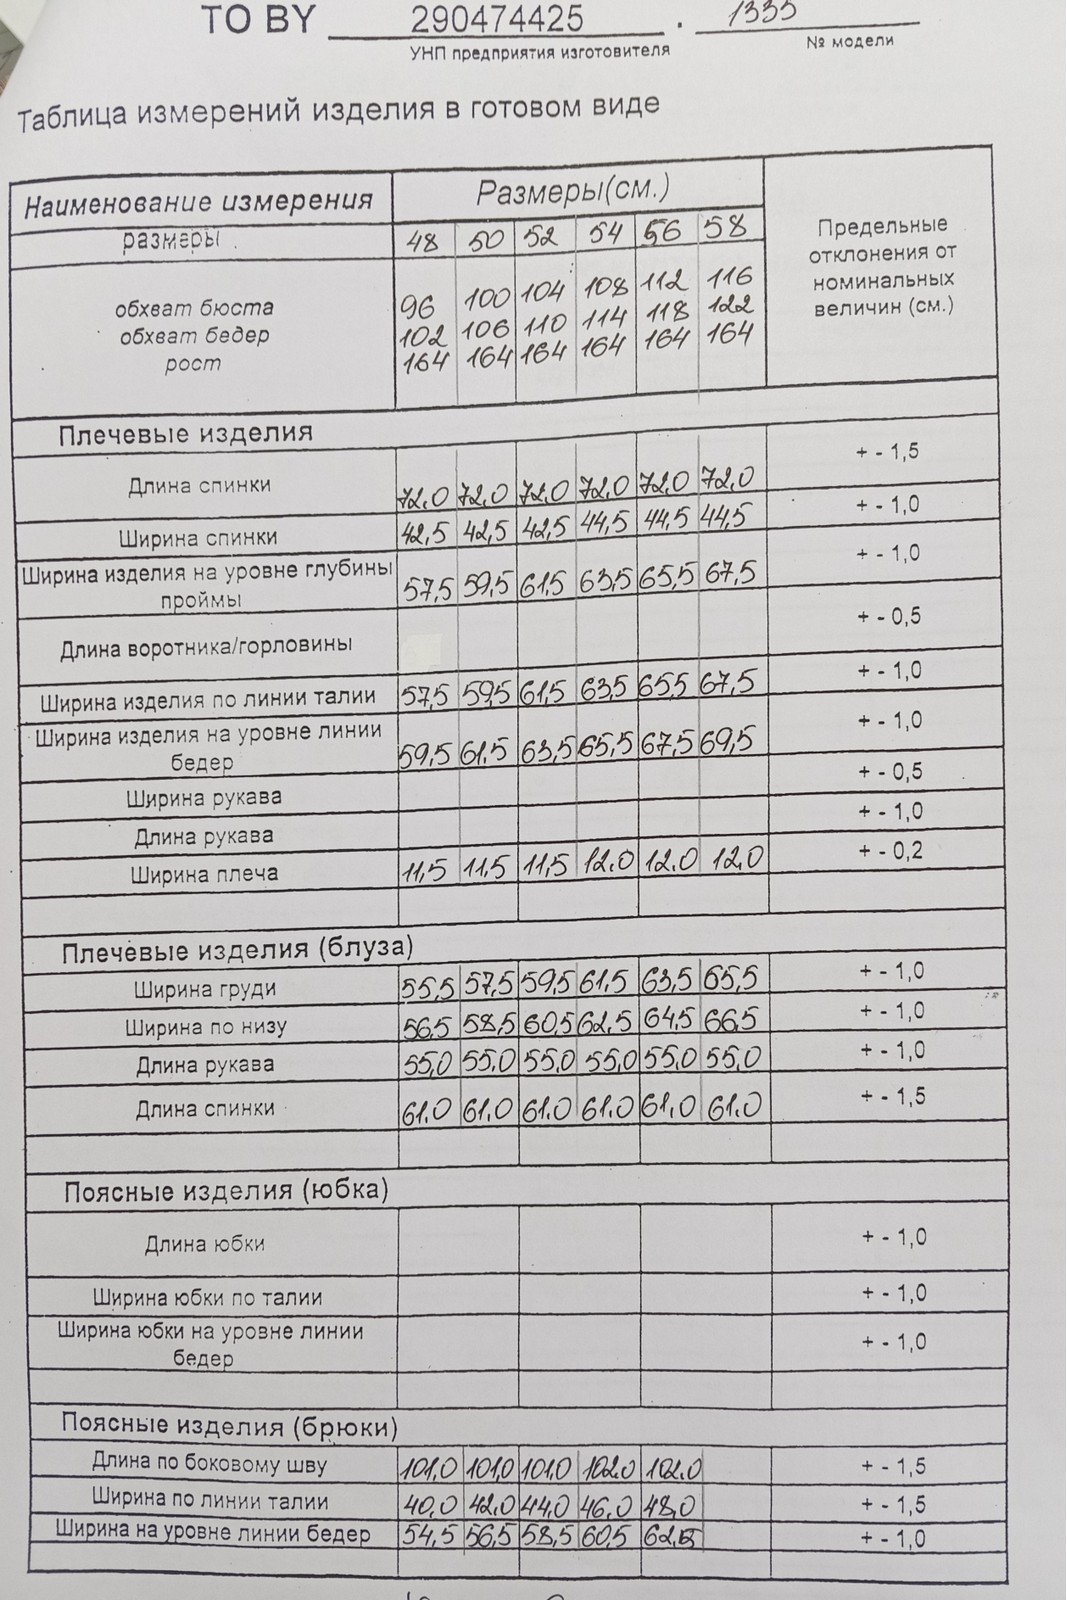 ТО BY 290474425 . 1335
УНП предприятия изготовителя № модели
Таблица измерений изделия в готовом виде
Наименование измерения Размеры(см.) Предельные отклонения от номинальных величин (см.)
размеры 48 50 52 54 56 58
обхват бюста 96 100 104 108 112 116
обхват бедер 102 106 110 114 118 122
рост 164 164 164 164 164 164
Плечевые изделия
Длина спинки 72.0 72.0 72.0 72.0 72.0 72.0 + - 1,5
Ширина спинки 42,5 42,5 42,5 44,5 44,5 44,5 + - 1,0
Ширина изделия на уровне глубины проймы 57,5 59,5 61,5 63,5 65,5 67,5 + - 1,0
Длина воротника/горловины + - 0,5
Ширина изделия по линии талии 57,5 59,5 61,5 63,5 65,5 67,5 + - 1,0
Ширина изделия на уровне линии бедер 59,5 61,5 63,5 65,5 67,5 69,5 + - 1,0
Ширина рукава + - 0,5
Длина рукава + - 1,0
Ширина плеча 11,5 11,5 11,5 12.0 12.0 12.0 + - 0,2
Плечевые изделия (блуза)
Ширина груди 55,5 57,5 59,5 61,5 63,5 65,5 + - 1,0
Ширина по низу 56,5 58,5 60,5 62,5 64,5 66,5 + - 1,0
Длина рукава 55,0 55.0 55.0 55.0 55.0 55.0 + - 1,0
Длина спинки 61.0 61.0 61.0 61.0 61.0 61.0 + - 1,5
Поясные изделия (юбка)
Длина юбки + - 1,0
Ширина юбки по талии + - 1,0
Ширина юбки на уровне линии бедер + - 1,0
Поясные изделия (брюки)
Длина по боковому шву 101,0 101,0 101.0 102.0 102.0 + - 1,5
Ширина по линии талии 40,0 42.0 44.0 46.0 48,0 + - 1,5
Ширина на уровне линии бедер 54,5 56,5 58,5 60,5 62,5 + - 1,0